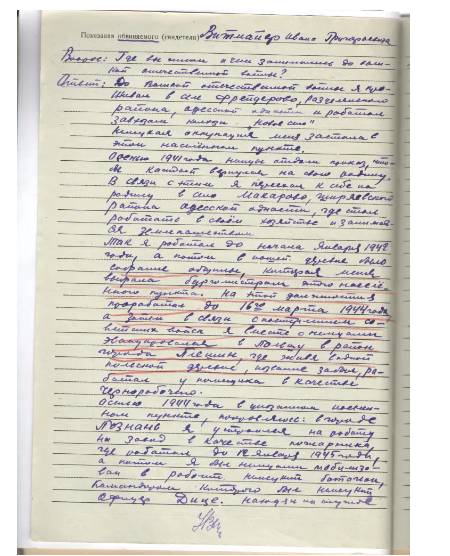 Показания обвиняемого (свидетеля) Витмайер Ивана Григорьевича
Вопрос: Где вы жили и чем занимались до вели-
кой отечественной войны?
Ответ: До великой отечественной войны я про-
живал в селе Фрейдерово, Раздельнянского
района, одесской области и работал
колхоза "Новое село"
Немецкая оккупация меня застала в
этом населенном пункте.
Осенью 1941 года немцы отдали приказ, что-
бы каждый вернулся на свою родину.
В связи с этим я переехал к себе на
родину в село Макарово, Ширяевского
района одесской области, где стал
работать в своем хозяйстве и занимат-
ся земледелием
Так я работал до начала января 1942
года, а потом в нашей деревне было
собрание общины, которая меня
выбрала бургомистром этого населе-
нного пункта. На этой должности я
проработал до 16го марта 1944 года
а затем в связи с наступлением со-
ветских войск я вместе с немцами
эвакуировался в Польшу в район
города где живя в одной
польской деревне, название забыл, ра-
ботал у помещика в качестве
чернорабочего.
Осенью 1944 года в населен-
ном пункте, в городе
Познань я устроился на работу
на завод в качестве пожарника,
где работал до 12 января 1945 года,
а потом я был немцами мобилизо-
ван в рабочий немецкий батальон,
командиром которого был немецкий
офицер Дице. Находясь на службе